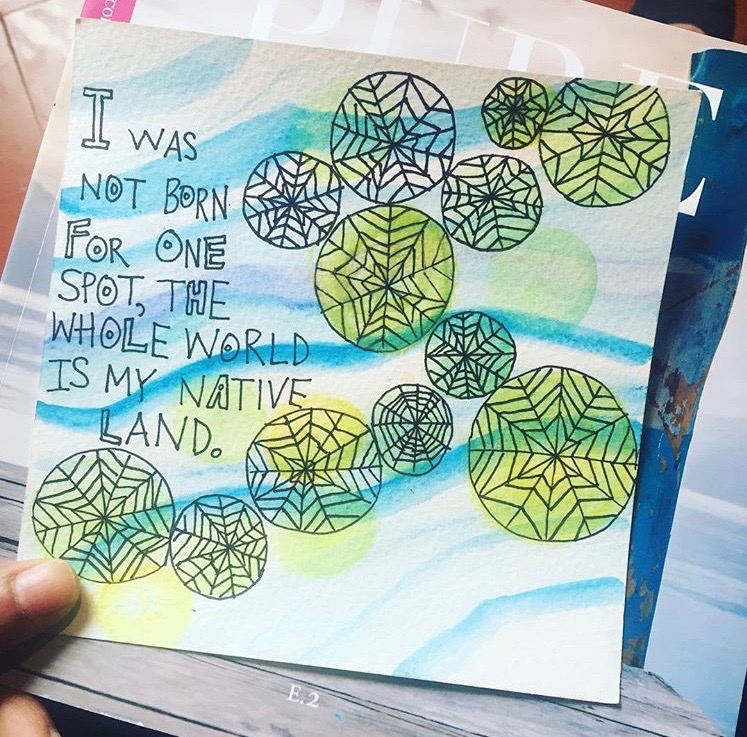 I WAS
NOT BORN
FOR ONE
SPOT, THE
WHOLE WORLD
IS MY NATIVE
LAND.
E.2